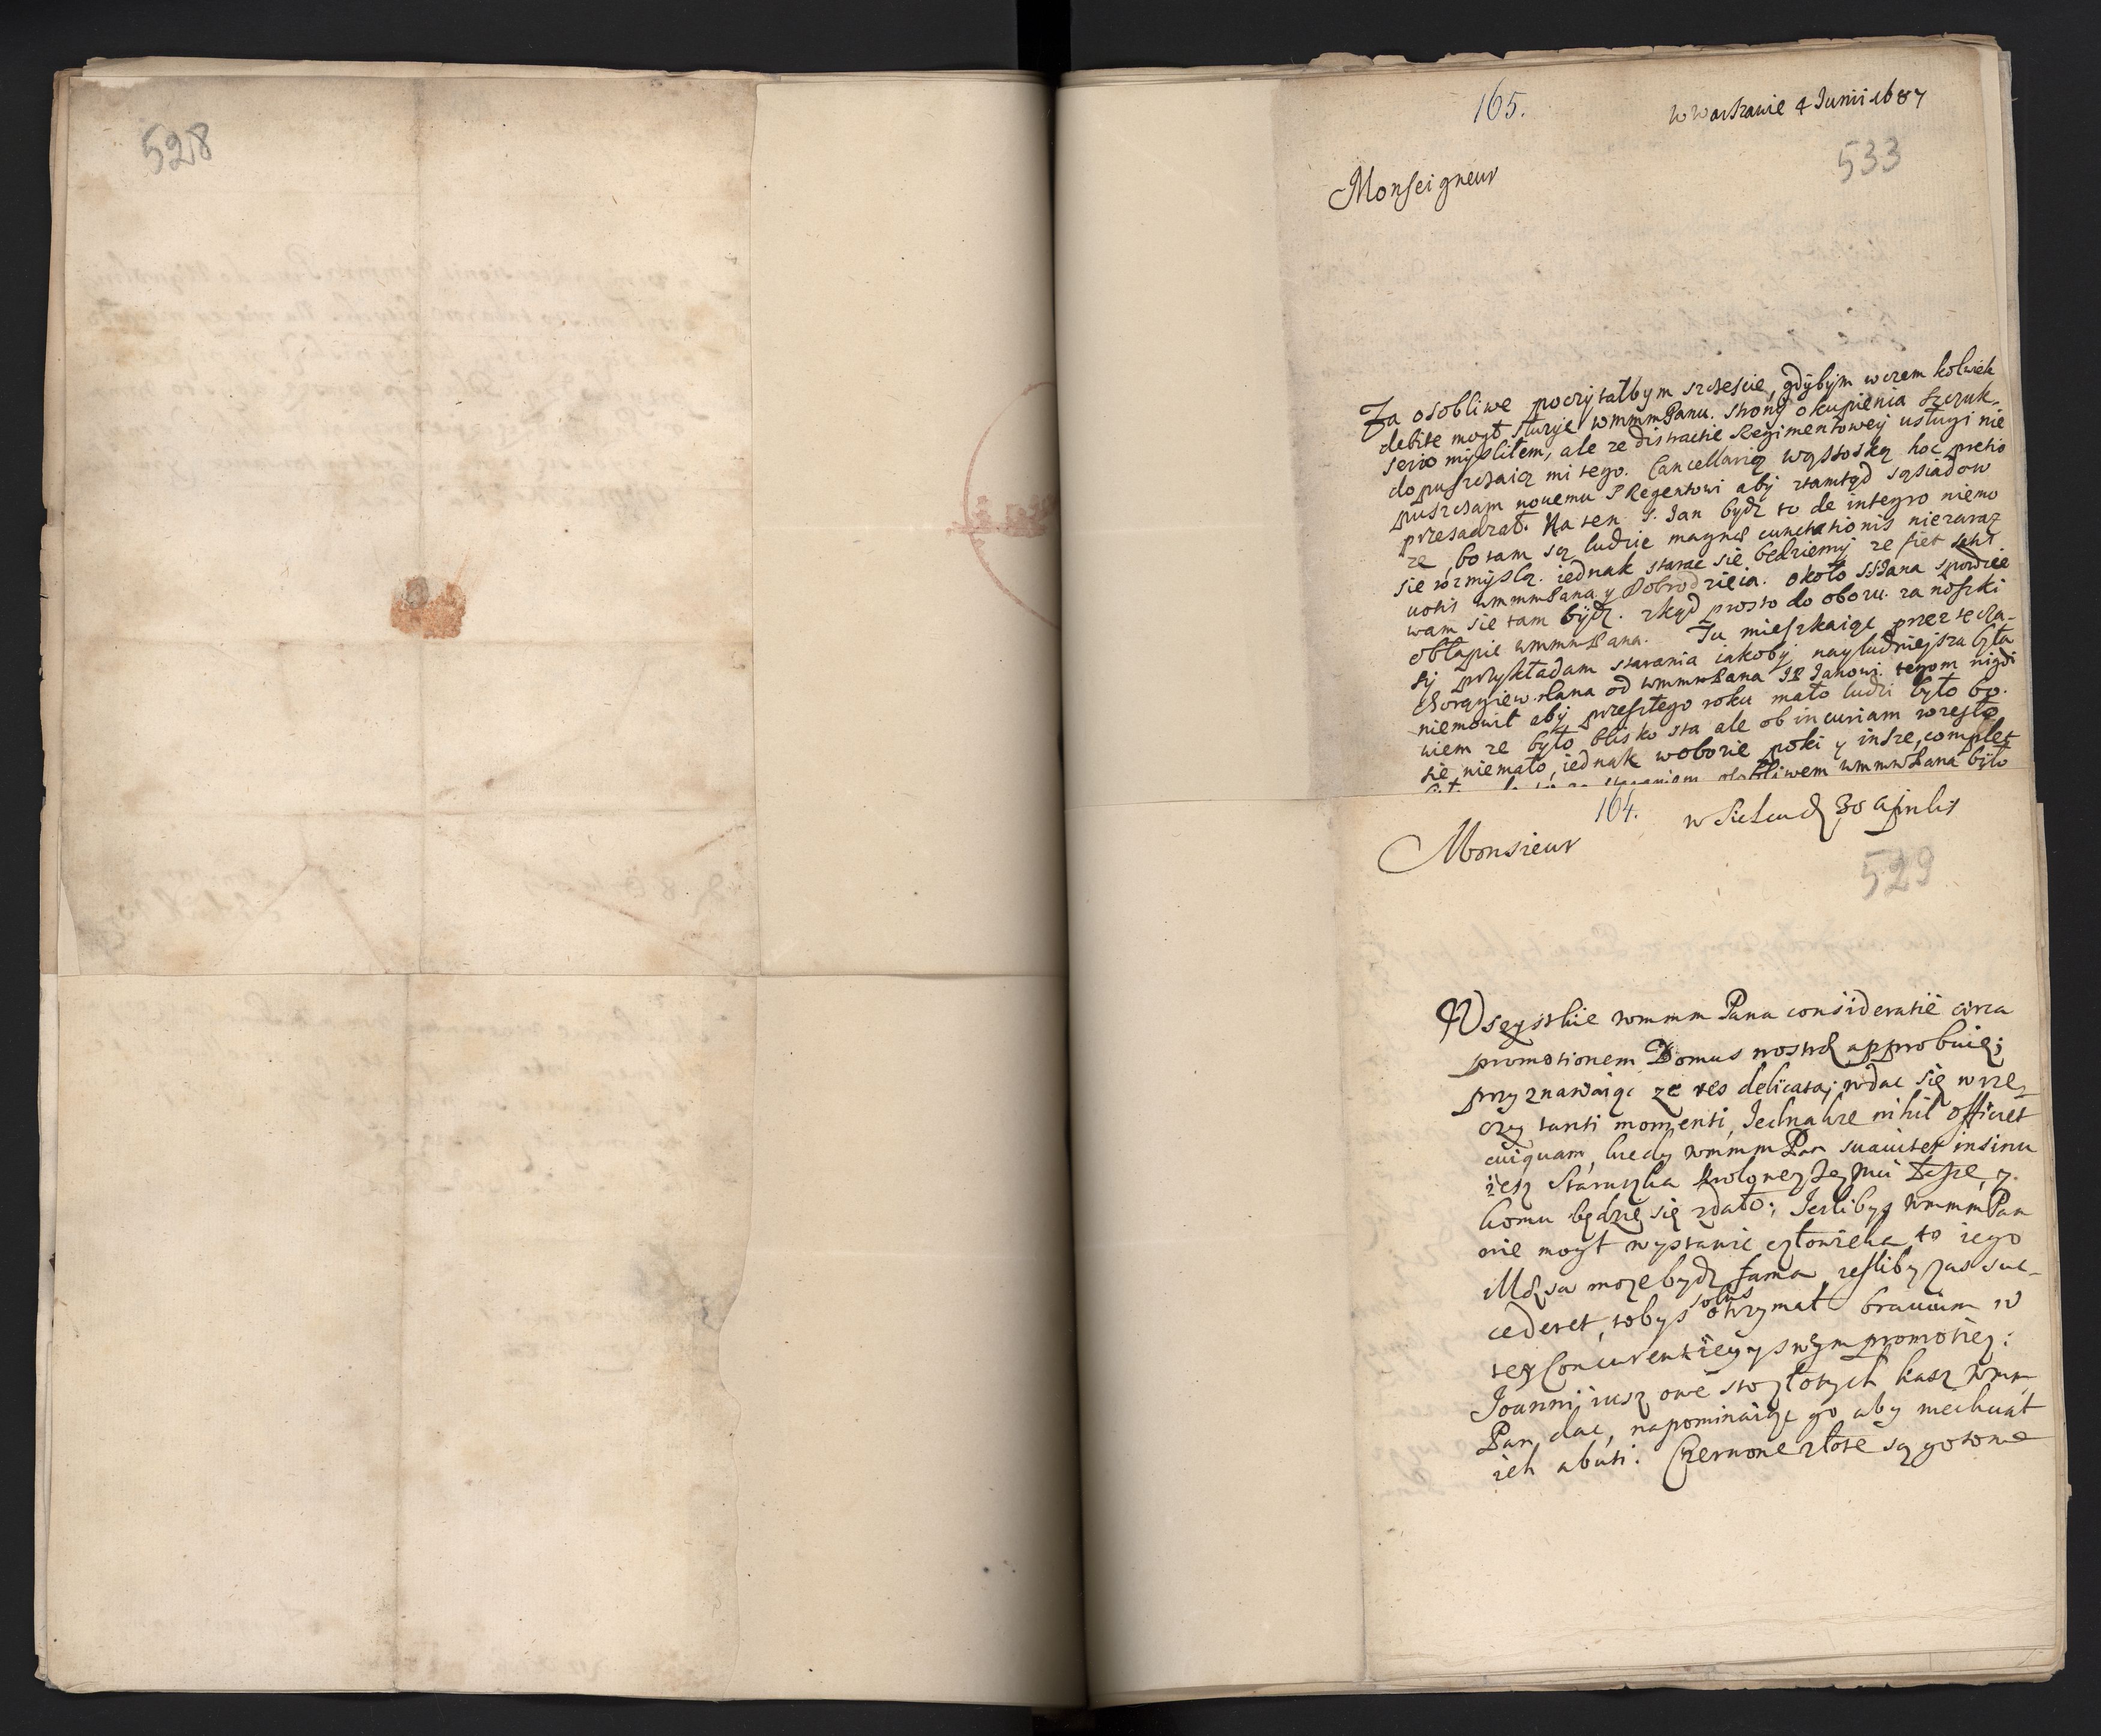 528
165.
w Warszawie 4 Junii 1687
533
Monseigneur
Za osobliwe poczytałbym szczescie, gdybym wczem kolwiek
debite mogł słuzyc wmmmPanu. strony okupienia Szczuk.
serio myslilem, ale ze distractie Regimentowey usługi nie
dopuszczaią mi tego. Cancellarią wąsoską hoc pretio
puszczam nouemu P Regentowi aby ztamtąd sąsiadow
przesadzał. Na ten S. Jan bydz to de integro niemo
ze, bo tam są ludzie magnæ cunctationis niezaraz
sie rozmyslą. iednak starac sie będziemy ze fiet satis
uotis wmmmPana y Dobrodzieia. około SJana spodzie
wam sie tam bydz. zkąd prosto do obozu. za noszki
obłapie wmmmPana. Tu mieszkaiąc przez te cza-
sy przykładam starania iakoby nayludniejsza była
chorągiew dana od wmmmPana JP Janowi. tegom nigdi
niemowił aby przeszłego roku mało ludzi było bo.
wiem ze było blisko sta ale ob incuriam rozeszło
się niemało, iednak wobozie poki y insze, complet
staraniem osobliwem wmmmPana było
164.
w Sielcu d 30 Aprilis
Monsieur
529
Wszystkie wmmm Pana consideratie circa
promotionem Domus nostræ approbuię;
przyznawaiąc ze res delicata, wdac się wrze
czy tanti momenti, Jednakze nihil officiet
cuiquam, kiedy wmmm Pan suauiter insinu
iesz Staruszka Krolowey Jey Mci
komu będzie się zdało; Jesliby wmmmPan
nie mogł wystawic człowieka to iego
Msza moze bydz sama, jesliby zas suc-
cederet, tobys solus otrzymał brauium w
tey Concurentiey y swym promotiey:
Joanni iusz owe sto złotych kasz wmm
Pan dac, napominaiąc go aby niechciał
ich abuti. Czerwone złote są gotowe